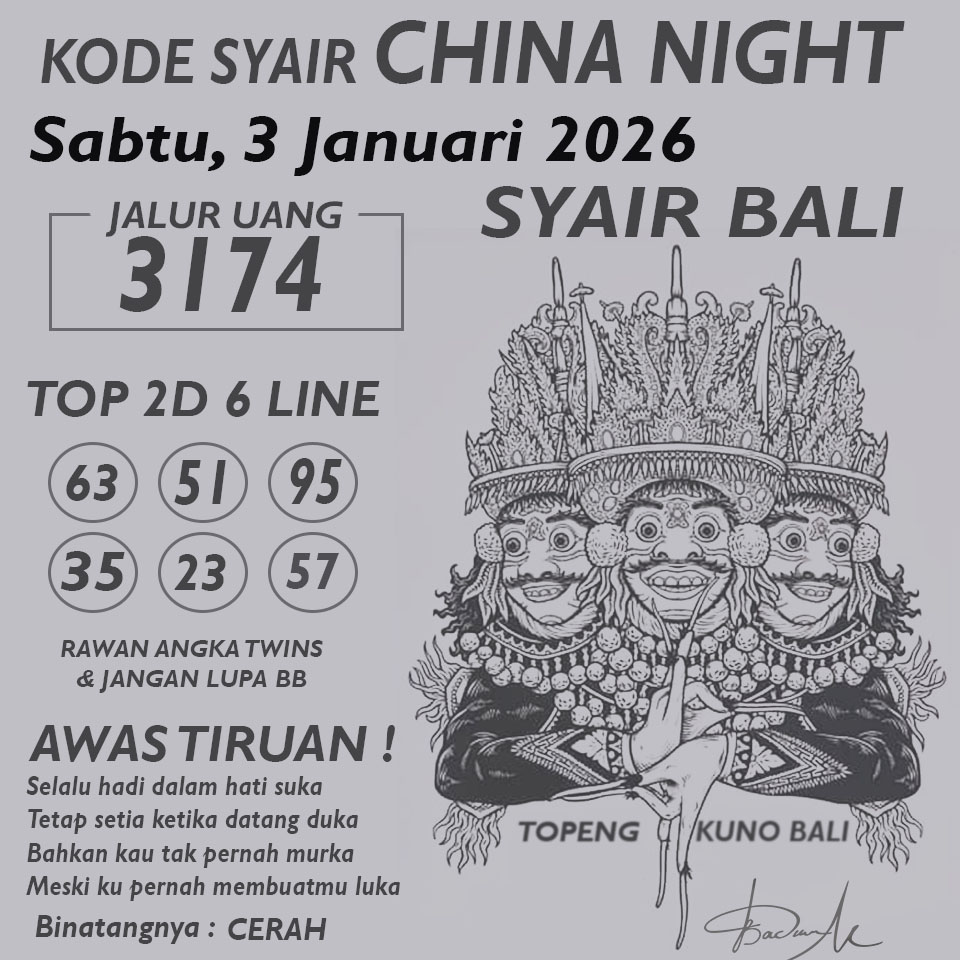 KODE SYAIR CHINA NIGHT
Sabtu, 3 Januari 2026
SYAIR BALI
JALUR UANG
3174
TOP 2D 6 LINE
63 51 95
35 23 57
RAWAN ANGKA TWINS
& JANGAN LUPA BB
AWAS TIRUAN !
Selalu hadi dalam hati suka
Tetap setia ketika datang duka
Bahkan kau tak pernah murka
Meski ku pernah membuatmu luka
Binatangnya : CERAH
TOPENG KUNO BALI